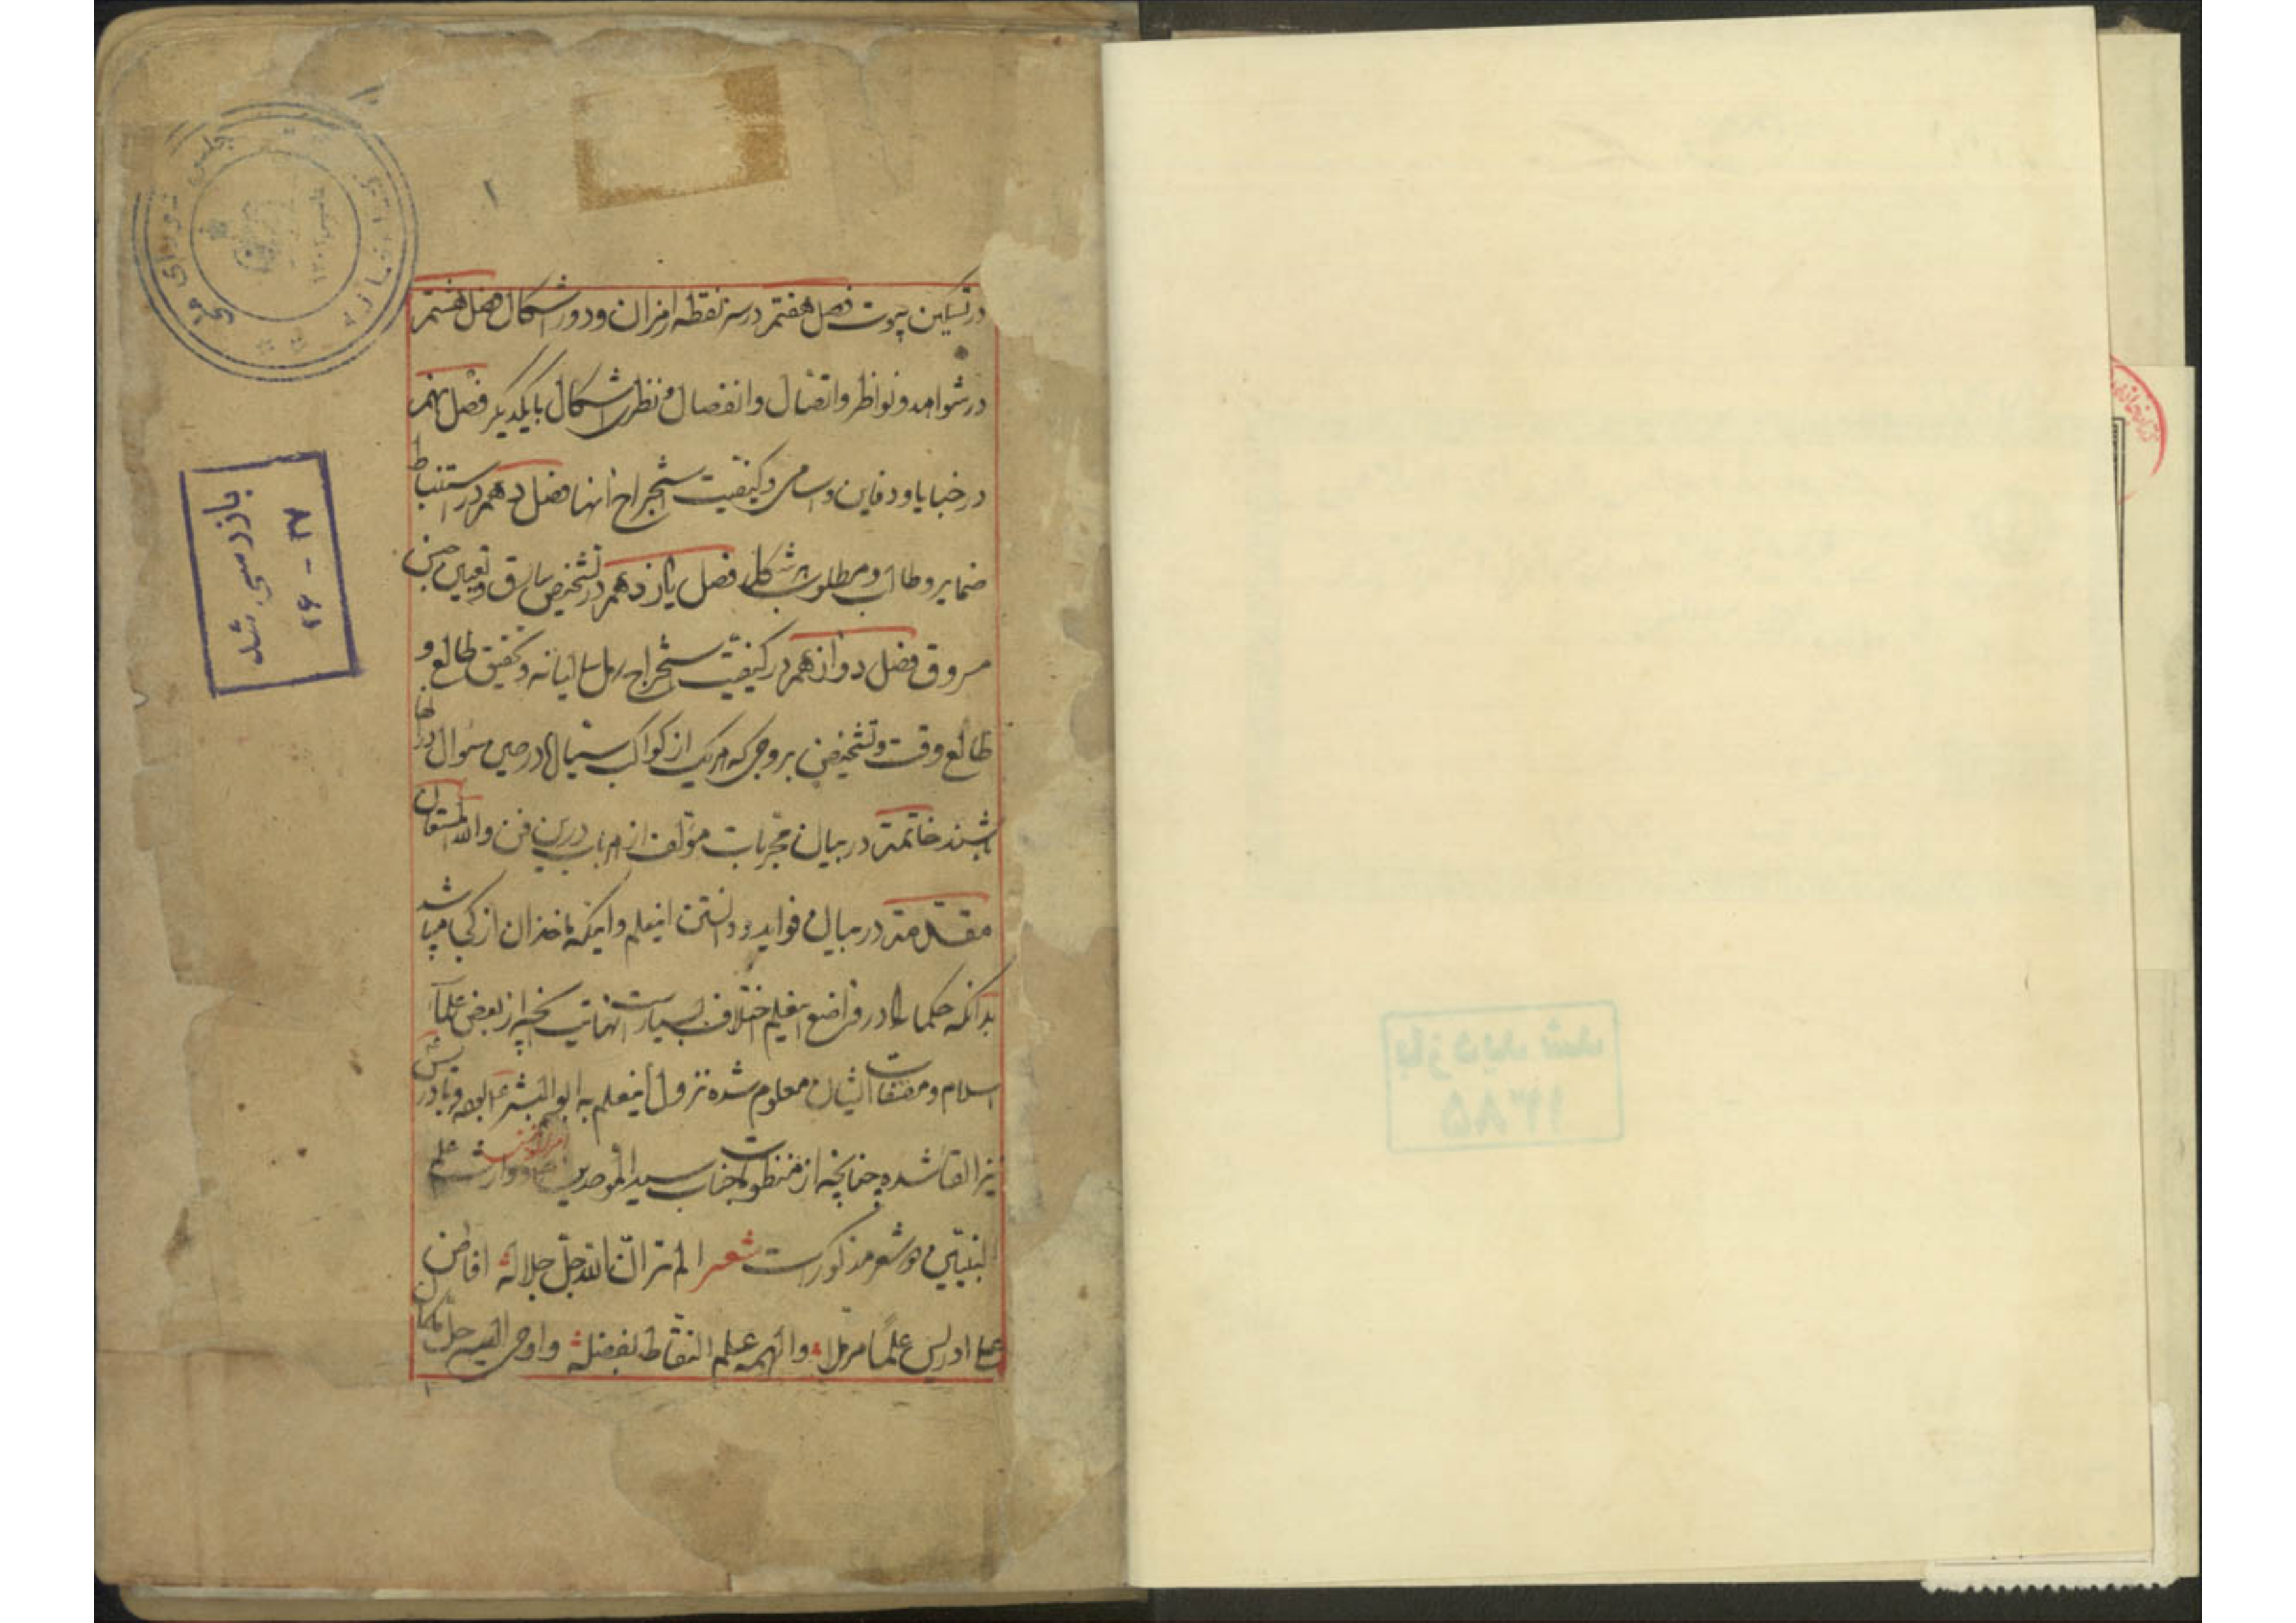 در تسکین بیوت فصل هفتم در سر نقطه امزان و دور اشکال فصل هشتم
در شواهد و نواظر و اتصال و انفصال و نظر اشکال بایکدیگر فصل نهم
در خبایا و دفاین و اسامی و کیفیت استخراج انها فصل دهم در استنباط
ضمایر و طالب و مطلوب شکل فصل یازدهم در تشخیص سارق و تعیین جنس
مسروق فصل دوازدهم در کیفیت استخراج رمل سالیانه و تحقیق طالع و
طالع وقت و تشخیص بروجی که هریک از کواکب سیاره در حین سوال درانها
باشند خاتمة در بیان مجربات مؤلف از هر باب درین فن و الله المستعان
مقدمة در بیان فواید و دانستن اینعلم و اینکه ماخذ ان از کجا میباشد
بدانکه حکما را در واضع اینعلم اختلاف بسیارست نهایت انچه از بعض علمآ
اسلام و مصنفات ایشان معلوم شده نزول اینعلم به ابوالبشر و بادریس
نیز القا شده چنانچه از منظومات جناب سید الموحدین و وارث علم
النبیین دو شعر مذکورست شعر الم تر ان الله جل جلاله افاض
علی ادریس علمًا مرملا و الهمه علم النقاط بفضله و اوحی الیه حل
۱
بازرسی شد
۳۷ - ۲۶
مجلس شورای ملی
کتابخانه
بازدید شد
۱۳۸۵